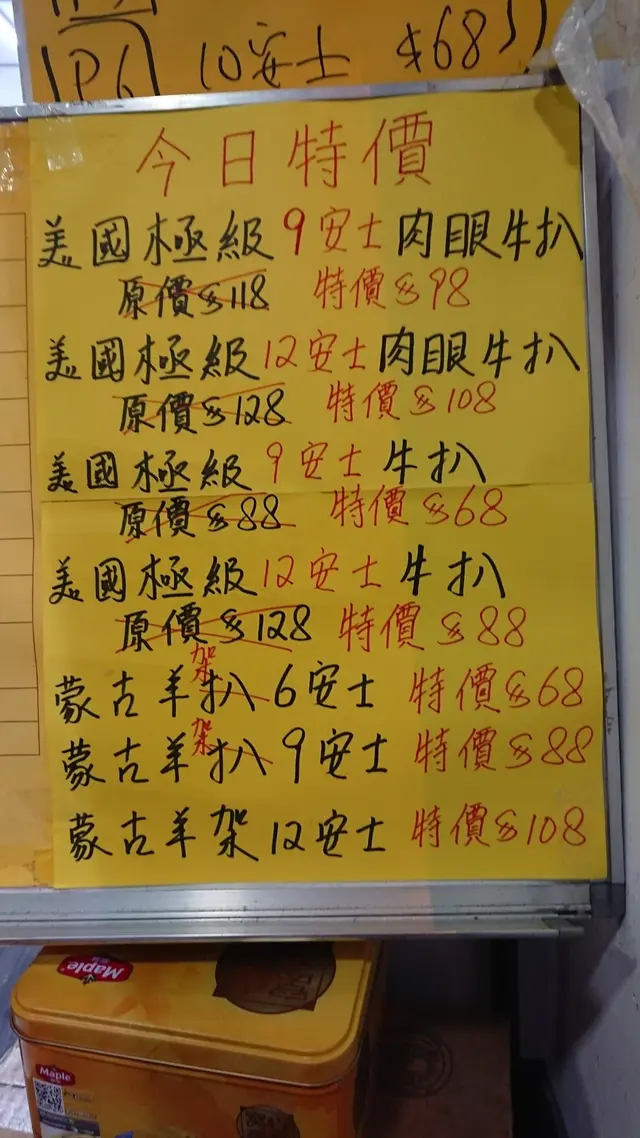 10安士 $68
今日特價
美國極級9安士肉眼牛扒
原價$118 特價$98
美國極級12安士肉眼牛扒
原價$128 特價$108
美國極級9安士牛扒
原價$88 特價$68
美國極級12安士牛扒
原價$128 特價$88
蒙古羊架扒6安士 特價$68
蒙古羊架扒9安士 特價$88
蒙古羊架12安士 特價$108
Maple
Maple